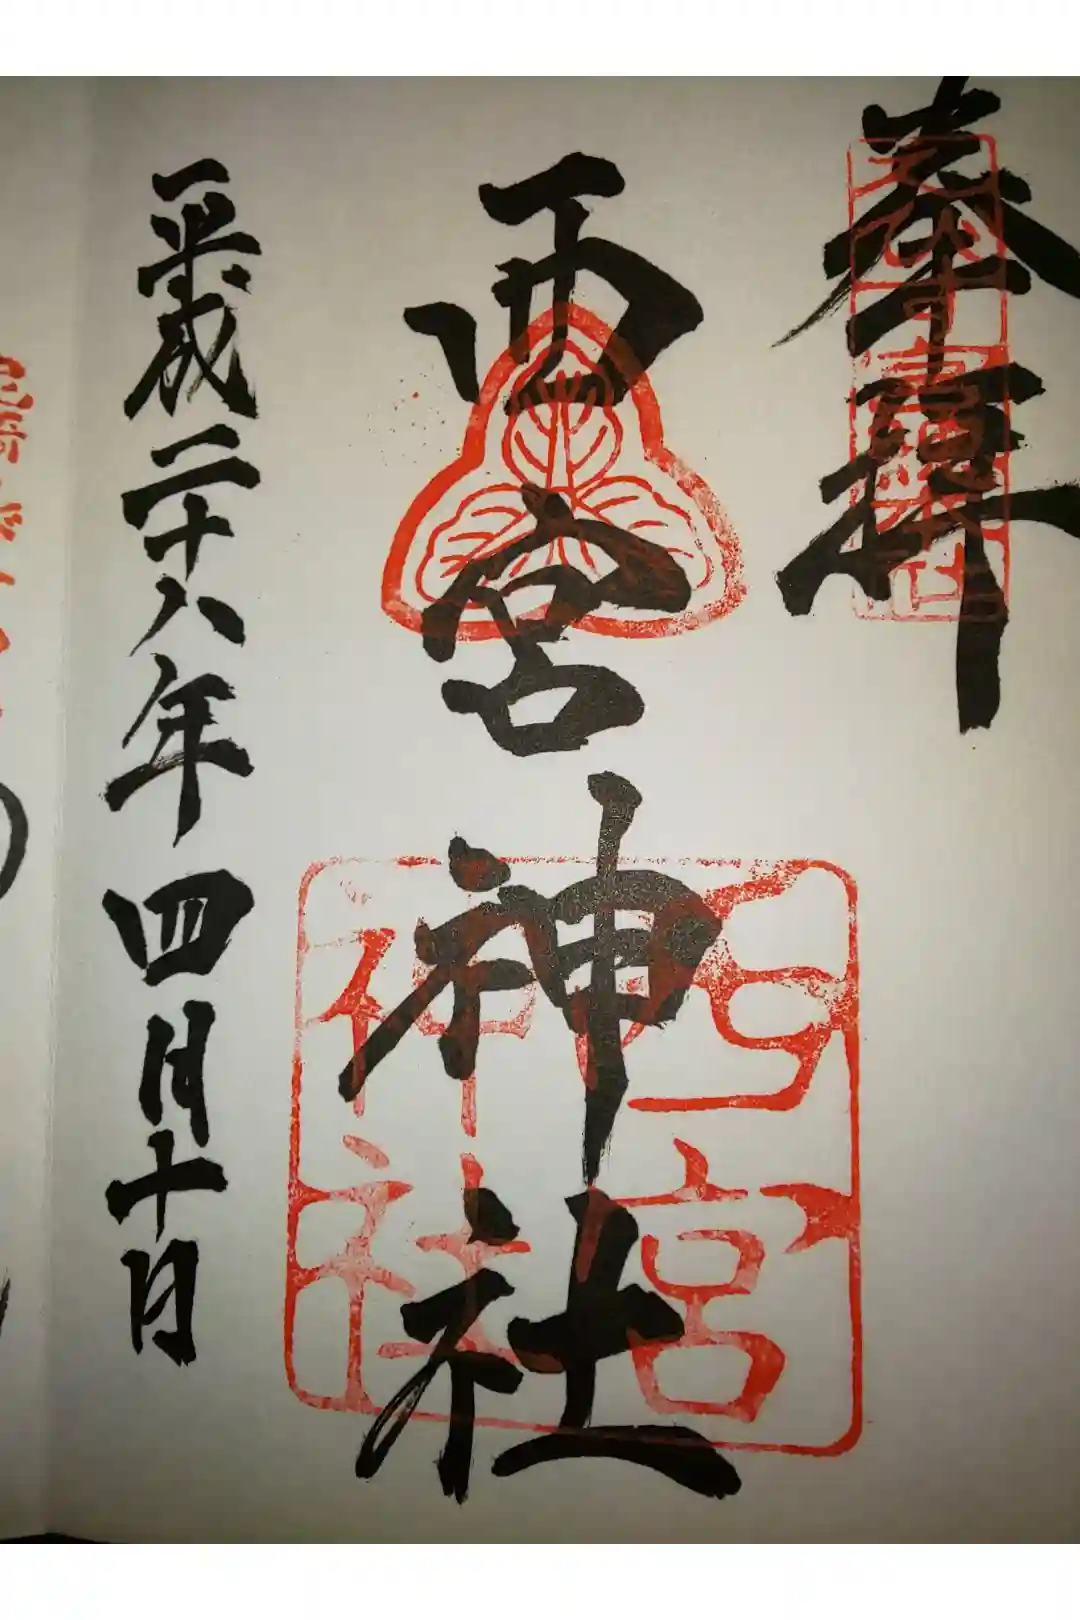 奉拝
西宮神社
西宮
神社
平成二十八年四月十日